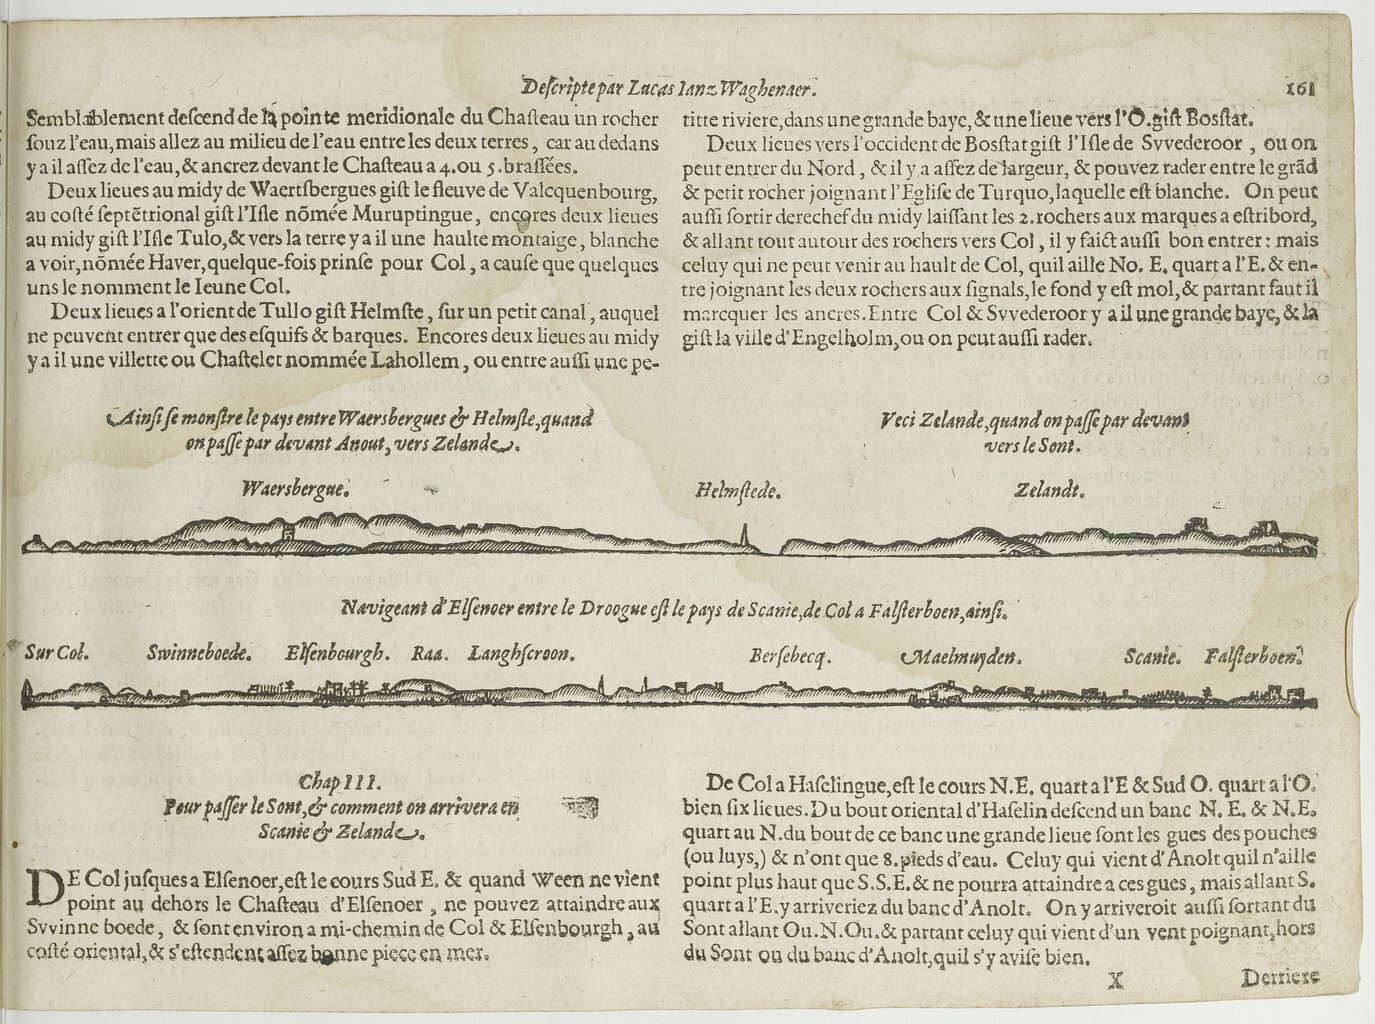 Descripte par Lucas Ianz Waghenaer.
161
Semblablement descend de la pointe meridionale du Chasteau un rocher
souz l'eau, mais allez au milieu de l'eau entre les deux terres, car au dedans
y a il assez de l'eau, & ancrez devant le Chasteau a 4. ou 5. brassées.
Deux lieues au midy de Waertsbergues gist le fleuve de Valcquenbourg,
au costé septẽtrional gist l'Isle nõmée Muruptingue, encores deux lieues
au midy gist l'Isle Tulo, & vers la terre y a il une haulte montaige, blanche
a voir, nõmée Haver, quelque-fois prinse pour Col, a cause que quelques
uns le nomment le Ieune Col.
Deux lieues a l'orient de Tullo gist Helmste, sur un petit canal, auquel
ne peuvent entrer que des esquifs & barques. Encores deux lieues au midy
y a il une villette ou Chastelet nommée Lahollem, ou entre aussi une pe-
titte riviere, dans une grande baye, & une lieue vers l'O. gist Bosstat.
Deux lieues vers l'occident de Bosstat gist l'Isle de Svvederoor, ou on
peut entrer du Nord, & il y a assez de largeur, & pouvez rader entre le grãd
& petit rocher joignant l'Eglise de Turquo, laquelle est blanche. On peut
aussi sortir derechef du midy laissant les 2. rochers aux marques a estribord,
& allant tout autour des rochers vers Col, il y faict aussi bon entrer: mais
celuy qui ne peut venir au hault de Col, quil aille No. E. quart a l'E. & en-
tre joignant les deux rochers aux signals, le fond y est mol, & partant faut il
marcquer les ancres. Entre Col & Svvederoor y a il une grande baye, & la
gist la ville d'Engelholm, ou on peut aussi rader.
Ainsi se monstre le pays entre Waersbergues & Helmste, quand
on passe par devant Anout, vers Zelande.
Veci Zelande, quand on passe par devant
vers le Sont.
Waersbergue. Helmstede. Zelandt.
Navigeant d'Elsenoer entre le Droogue est le pays de Scanie, de Col a Falsterboen, ainsi.
Sur Col. Swinneboede. Elsenbourgh. Raa. Langhscroon. Bersebecq. Maelmuyden. Scanie. Falsterboen.
Chap III.
Pour passer le Sont, & comment on arrivera en
Scanie & Zelande.
DE Col jusques a Elsenoer, est le cours Sud E. & quand Ween ne vient
point au dehors le Chasteau d'Elsenoer, ne pouvez attaindre aux
Svvinne boede, & sont environ a mi-chemin de Col & Elsenbourgh, au
costé oriental, & s'estendent assez bonne piece en mer.
De Col a Haselingue, est le cours N.E. quart a l'E & Sud O. quart a l'O.
bien six lieues. Du bout oriental d'Haselin descend un banc N. E. & N.E.
quart au N. du bout de ce banc une grande lieue sont les gues des pouches
(ou luys,) & n'ont que 8. pieds d'eau. Celuy qui vient d'Anolt quil n'aille
point plus haut que S.S.E. & ne pourra attaindre a ces gues, mais allant S.
quart a l'E. y arriveriez du banc d'Anolt. On y arriveroit aussi sortant du
Sont allant Ou. N. Ou. & partant celuy qui vient d'un vent poignant, hors
du Sont ou du banc d'Anolt, quil s'y avise bien.
X Derriere